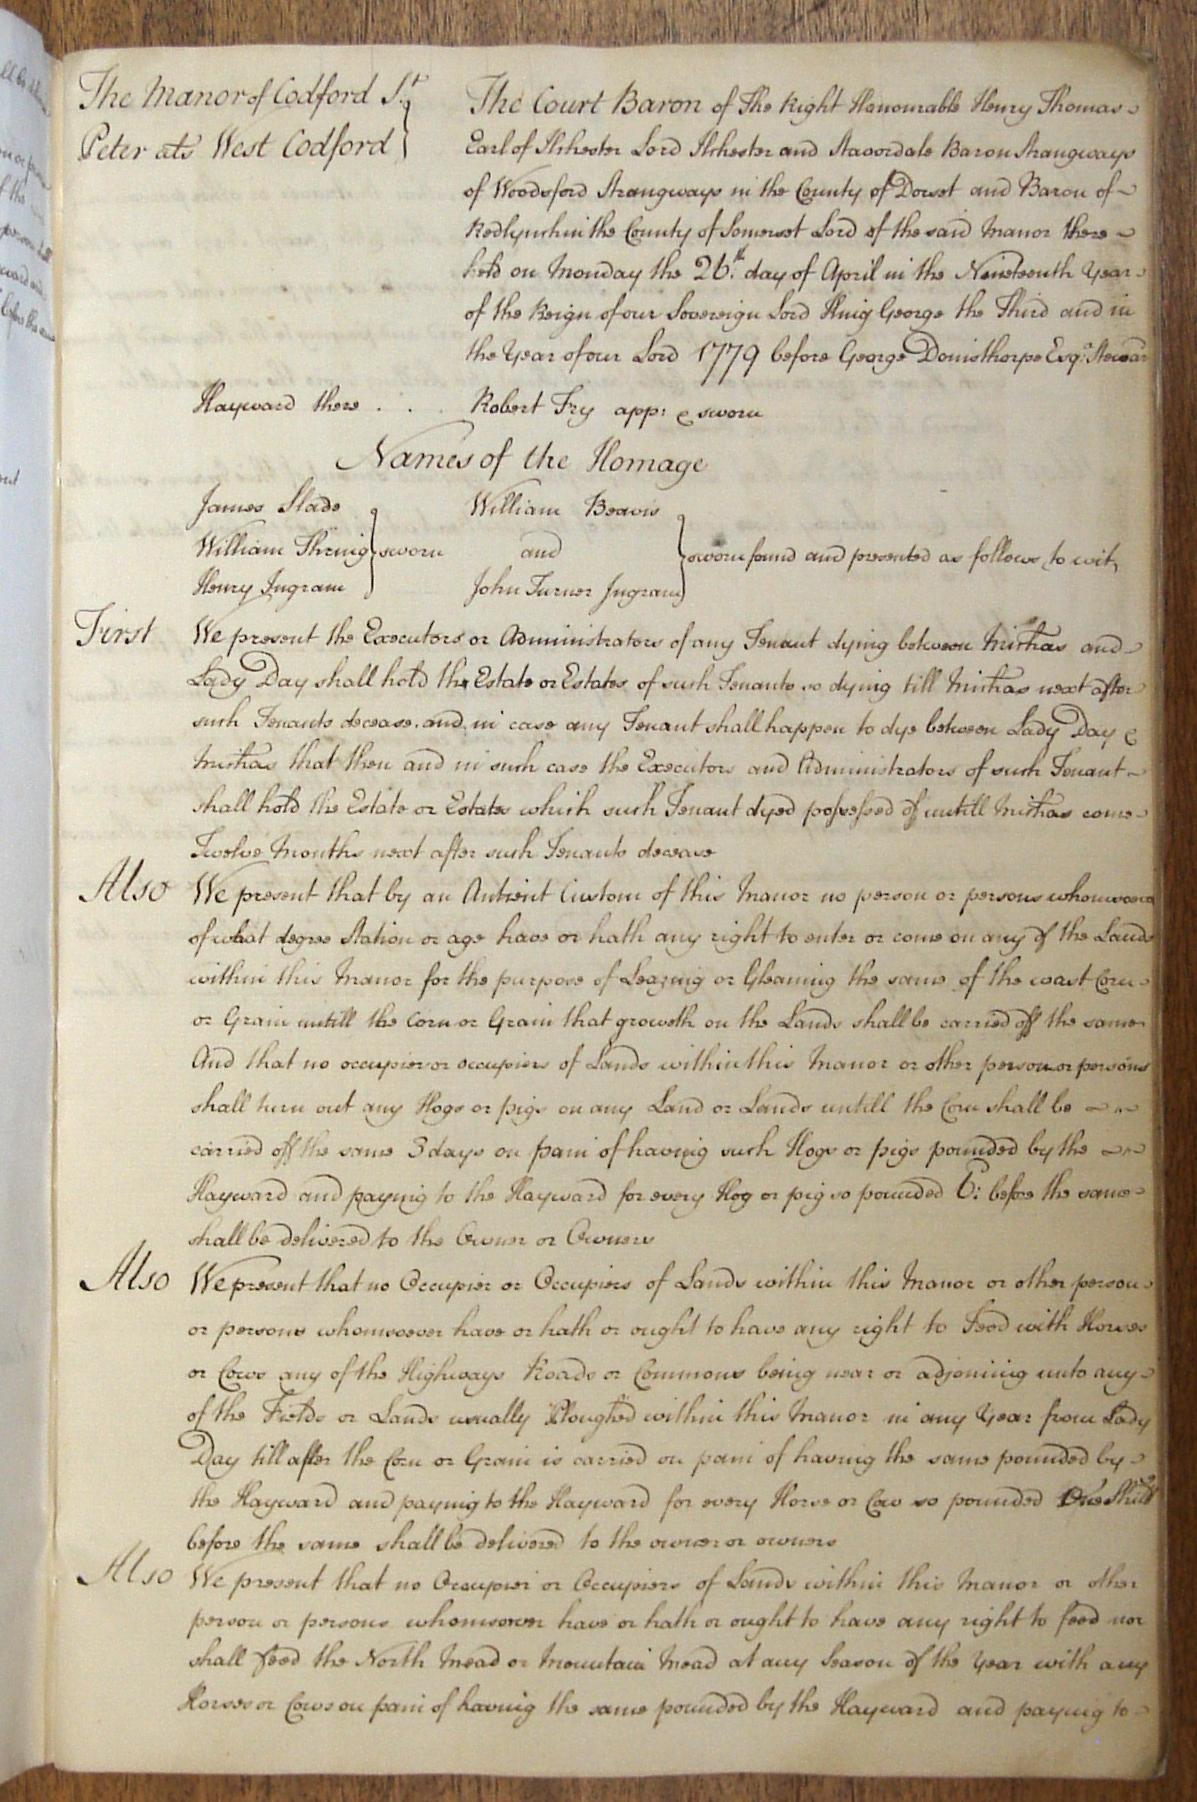 The Manor of Codford St
Peter als West Codford
The Court Baron of The Right Honourable Henry Thomas
Earl of Ilchester Lord Ilchester and Stavordale Baron Strangways
of Woodsford Strangways in the County of Dorset and Baron of
Redlynch in the County of Somerset Lord of the said Manor there
held on Monday the 26th day of April in the Nineteenth Year
of the Reign of our Sovereign Lord King George the Third and in
the Year of our Lord 1779 before George Donisthorpe Esqr. Steward
Hayward there . . . Robert Fry app: & sworn
Names of the Homage
James Slade
William Thring
Henry Ingram
sworn
William Beavis
and
John Turner Ingram
sworn found and presented as follows, to wit,
First We present the Executors or Administrators of any Tenant dying between Michas and
Lady Day shall hold the Estate or Estates of such Tenants so dying till Michas next after
such Tenants decease. and in case any Tenant shall happen to dye between Lady Day &
Michas that then and in such case the Executors and Administrators of such Tenant
shall hold the Estate or Estates which such Tenant dyed possessed of untill Michas come
Twelve Months next after such Tenants decease
Also We present that by an Antient Custom of this Manor no person or persons whomsoever
of what degree Station or age have or hath any right to enter or come on any of the Lands
within this Manor for the purpose of Leazing or Gleaning the same of the wast Corn
or Grain untill the Corn or Grain that groweth on the Lands shall be carried off the same
And that no occupier or occupiers of Lands within this Manor or other person or persons
shall turn out any Hogs or pigs on any Land or Lands untill the Corn shall be
carried off the same 3 days on pain of having such Hogs or pigs pounded by the
Hayward and paying to the Hayward for every Hog or pig so pounded 6: before the same
shall be delivered to the Owner or Owners
Also We present that no Occupier or Occupiers of Lands within this Manor or other person
or persons whomsoever have or hath or ought to have any right to Feed with Horses
or Cows any of the Highways Roads or Commons being near or adjoining unto any
of the Fields or Lands usually Ploughed within this Manor in any Year from Lady
Day till after the Corn or Grain is carried on pain of having the same pounded by
the Hayward and paying to the Hayward for every Horse or Cow so pounded One Shills
before the same shall be delivered to the owner or owners
Also We present that no Occupier or Occupiers of Lands within this Manor or other
person or persons whomsoever have or hath or ought to have any right to feed nor
shall feed the North Mead or Mountain Mead at any Season of the Year with any
Horses or Cows on pain of having the same pounded by the Hayward and paying to